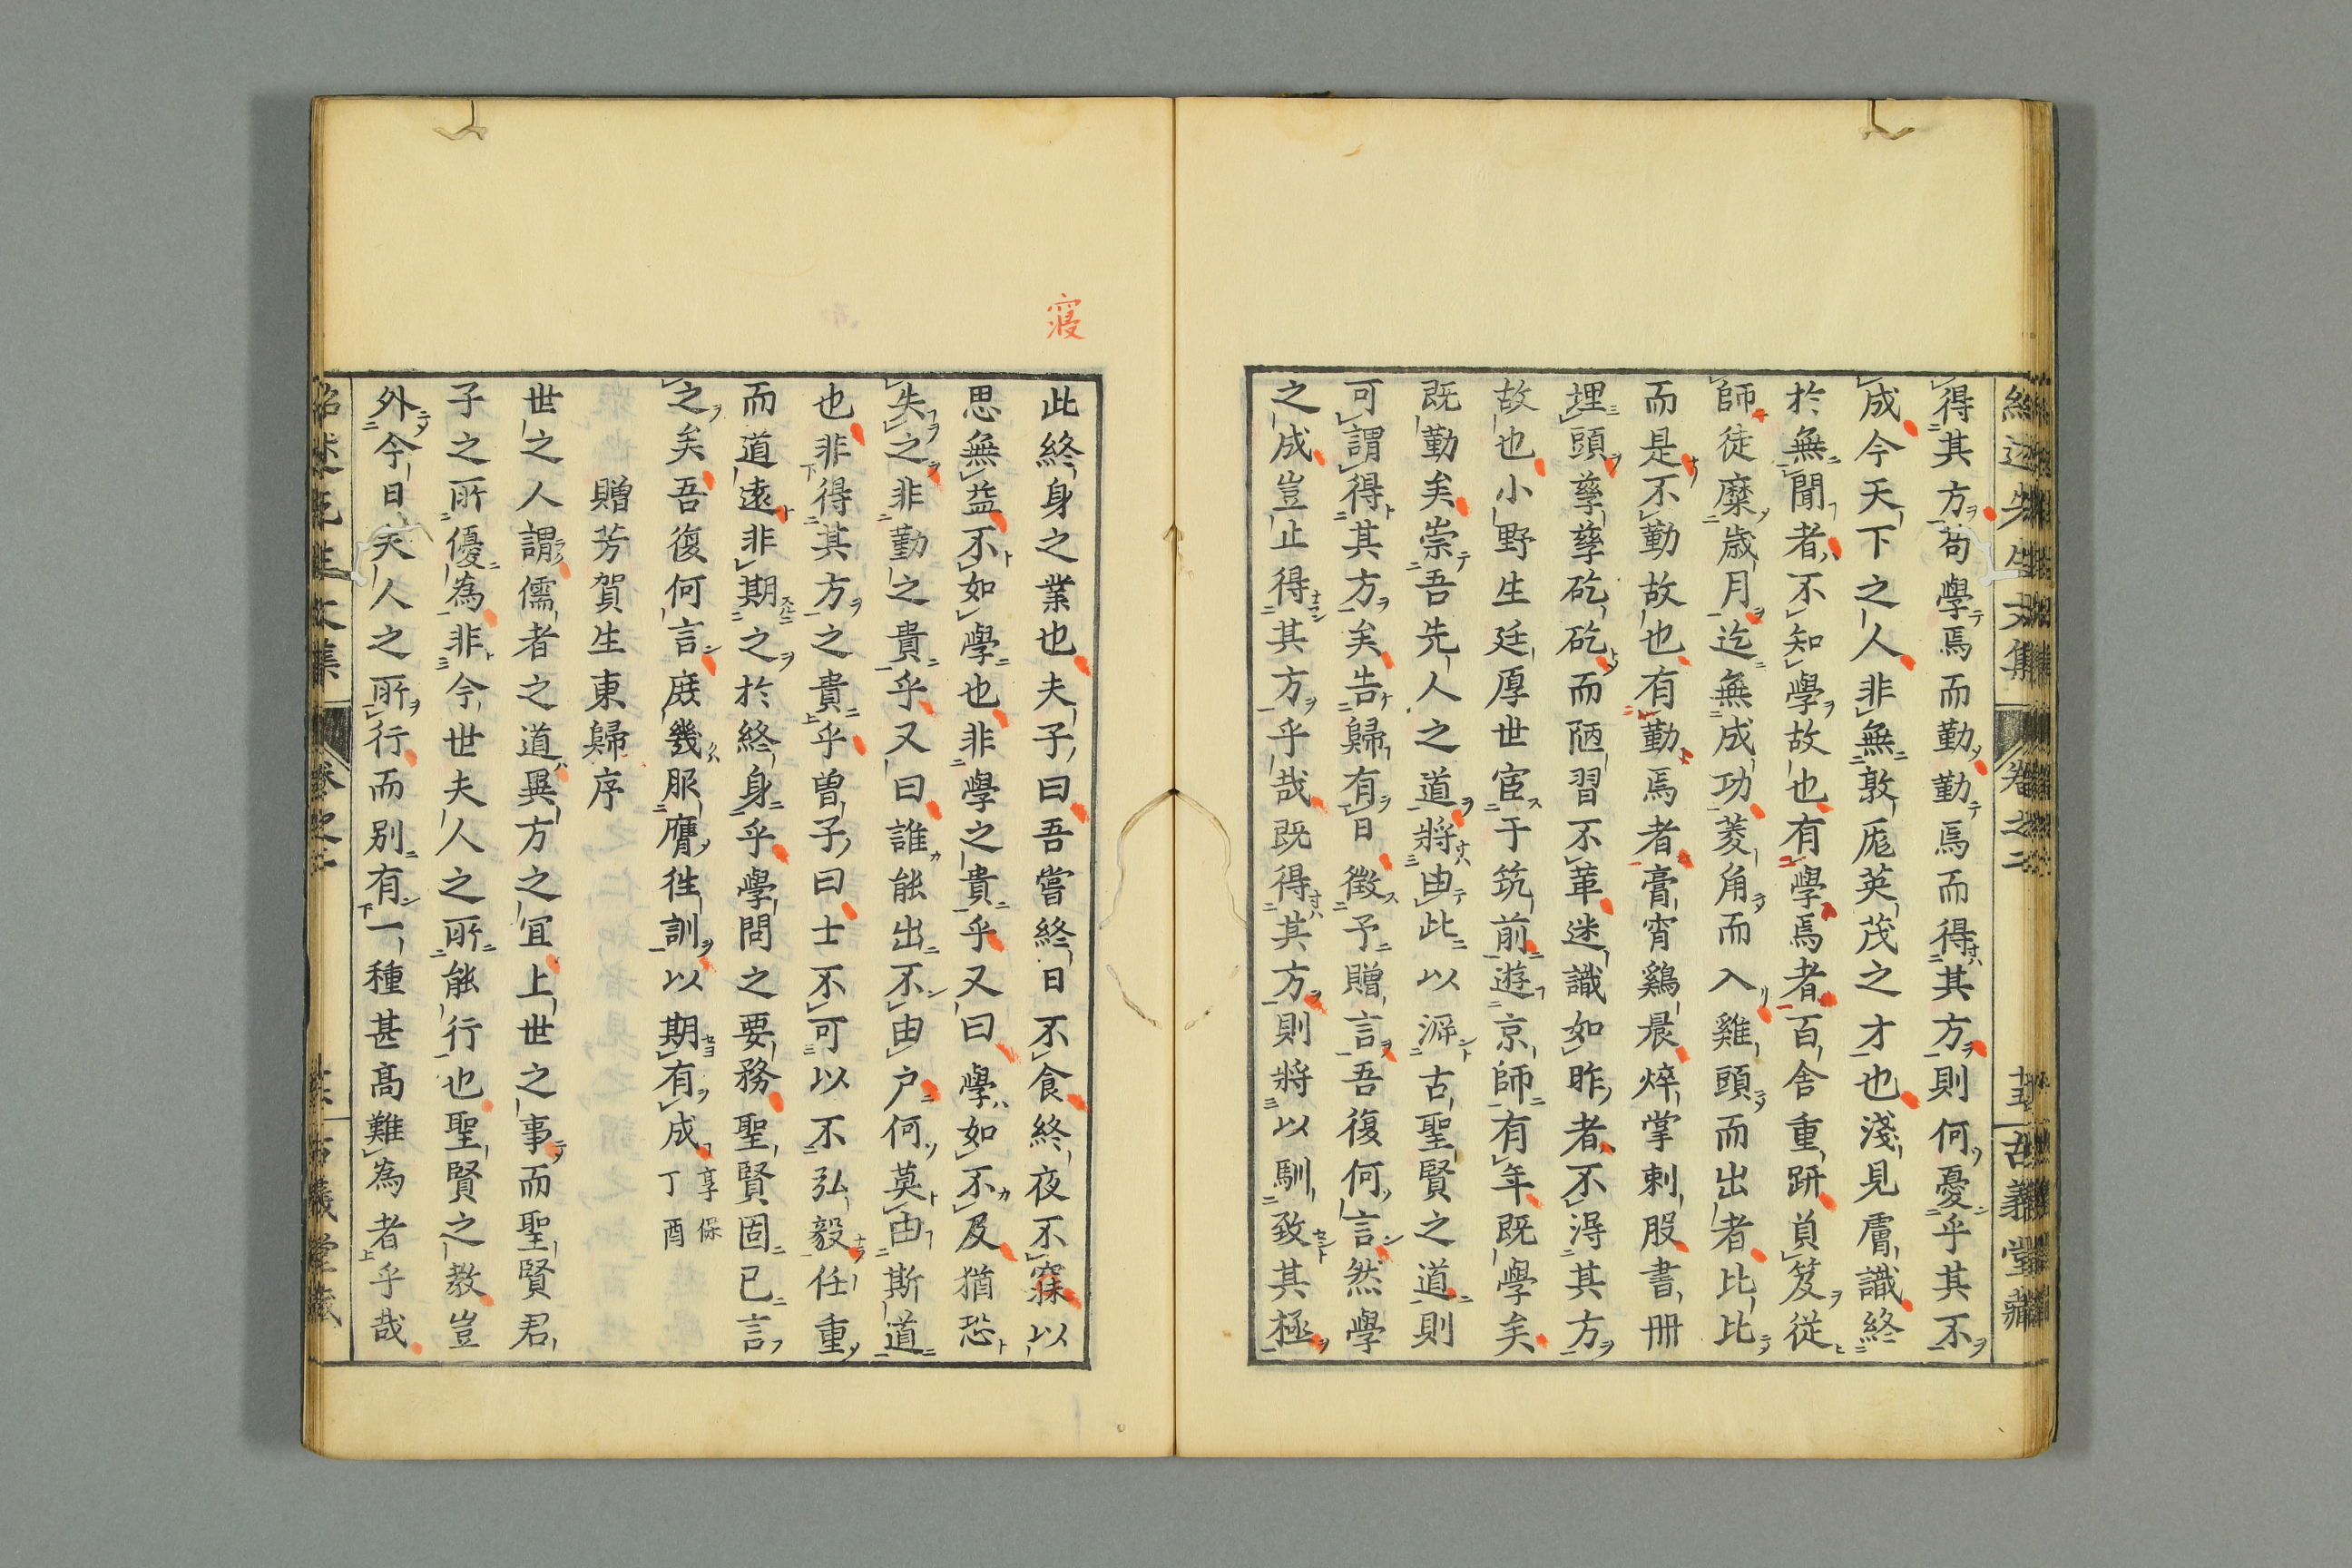 紹述先生文集 卷之二 十五 古義堂藏
得其方苟學焉而勤勤焉而得其方則何憂乎其不
成今天下之人非無敦厖英茂之才也淺見膚識終
於無聞者不知學故也有學焉者百舍重趼負笈從
師徒糜歲月迄無成功菱角而入雞頭而出者比比
而是不勤故也有勤焉者膏宵鷄晨焠掌刺股書冊
埋頭孳孳矻矻而陋習不革迷識如昨者不得其方
故也小野生廷厚世宦于筑前遊京師有年既學矣
既勤矣崇吾先人之道將由此以泝古聖賢之道則
可謂得其方矣告歸有日徵予贈言吾復何言然學
之成豈止得其方乎哉既得其方則將以馴致其極
寢
此終身之業也夫子曰吾嘗終日不食終夜不寐以
思無益不如學也非學之貴乎又曰學如不及猶恐
失之非勤之貴乎又曰誰能出不由戶何莫由斯道
也非得其方之貴乎曾子曰士不可以不弘毅任重
而道遠非期之於終身乎學問之要務聖賢固已言
之矣吾復何言庶幾服膺往訓以期有成 享保丁酉
贈芳賀生東歸序
世之人謂儒者之道異方之宜上世之事而聖賢君
子之所優為非今世夫人之所能行也聖賢之教豈
外今日夫人之所行而別有一種甚高難為者乎哉
紹述先生文集 卷之二 古義堂藏